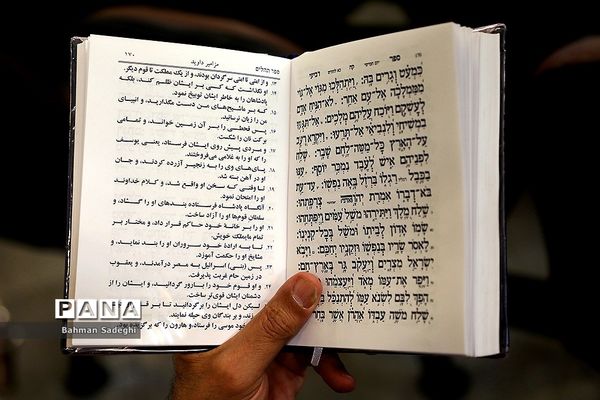 ۱۷۰
مزامیر داوید
ספר תהילים
۱۳. و از امتی تا امتی سرگردان بودند، و از یک مملکت تا قوم دیگر.
۱۴. او نگذاشت که کسی بر ایشان ظلم کند، بلکه
پادشاهان را به خاطر ایشان توبیخ نمود.
۱۵. که بر ماشیح‌های من دست مگذارید، و انبیای
من را زیان نرسانید.
۱۶. پس قحطی را بر آن زمین خواند، و تمامی
برکت نان را شکست.
۱۷. و مردی پیش روی ایشان فرستاد، یعنی یوسف
را که او را به غلامی می‌فروختند.
۱۸. پای‌های وی را به زنجیر آزرده کردند، و جان
او در آهن بسته شد.
۱۹. تا وقتی که سخن او واقع شد، و کلام خداوند
او را امتحان نمود.
۲۰. آنگاه پادشاه فرستاده بندهای او را گشاد، و
سلطان قوم‌ها او را آزاد ساخت.
۲۱. او را بر خانهٔ خود حاکم قرار داد، و مختار بر
تمام مایملک خویش.
۲۲. تا به ارادهٔ خود سروران او را بند نماید، و
مشایخ او را حکمت آموزد.
۲۳. پس (بنی) اسرائیل به مصر درآمدند، و یعقوب
در زمین حام غربت پذیرفت.
۲۴. و او قوم خود را بارور گردانید، و ایشان را از
دشمنان ایشان قوی‌تر ساخت.
۲۵. لیکن دل ایشان را برگردانید تا بر
و بر بندگان وی حیله نمایند.
خود موسی را فرستاد، و هارون را که برگزیده بود.
ספר
קה
כִּמְעַט וְגָרִים בָּהּ: וַיִּתְהַלְּכוּ מִגּוֹי אֶל־גּוֹי
מִמַּמְלָכָה אֶל־עַם אַחֵר: לֹא־הִנִּיחַ אָדָם
לְעָשְׁקָם וַיּוֹכַח עֲלֵיהֶם מְלָכִים: אַל־תִּגְּעוּ
בִמְשִׁיחָי וְלִנְבִיאַי אַל־תָּרֵעוּ: וַיִּקְרָא רָעָב
עַל־הָאָרֶץ כָּל־מַטֵּה־לֶחֶם שָׁבָר: שָׁלַח
לִפְנֵיהֶם אִישׁ לְעֶבֶד נִמְכַּר יוֹסֵף: עִנּוּ
בַכֶּבֶל רַגְלוֹ בַּרְזֶל בָּאָה נַפְשׁוֹ: עַד־עֵת
בֹּא־דְבָרוֹ אִמְרַת יְהֹוָה צְרָפָתְהוּ:
שָׁלַח מֶלֶךְ וַיַּתִּירֵהוּ מֹשֵׁל עַמִּים וַיְפַתְּחֵהוּ:
שָׂמוֹ אָדוֹן לְבֵיתוֹ וּמֹשֵׁל בְּכָל־קִנְיָנוֹ:
לֶאְסֹר שָׂרָיו בְּנַפְשׁוֹ וּזְקֵנָיו יְחַכֵּם: וַיָּבֹא
יִשְׂרָאֵל מִצְרָיִם וְיַעֲקֹב גָּר בְּאֶרֶץ־חָם:
וַיֶּפֶר אֶת־עַמּוֹ מְאֹד וַיַּעֲצִמֵהוּ
הָפַךְ לִבָּם לִשְׂנֹא עַמּוֹ לְהִתְנַכֵּל
שָׁלַח מֹשֶׁה עַבְדּוֹ אַהֲרֹן אֲשֶׁר
PANA
Bahman Sadeghi